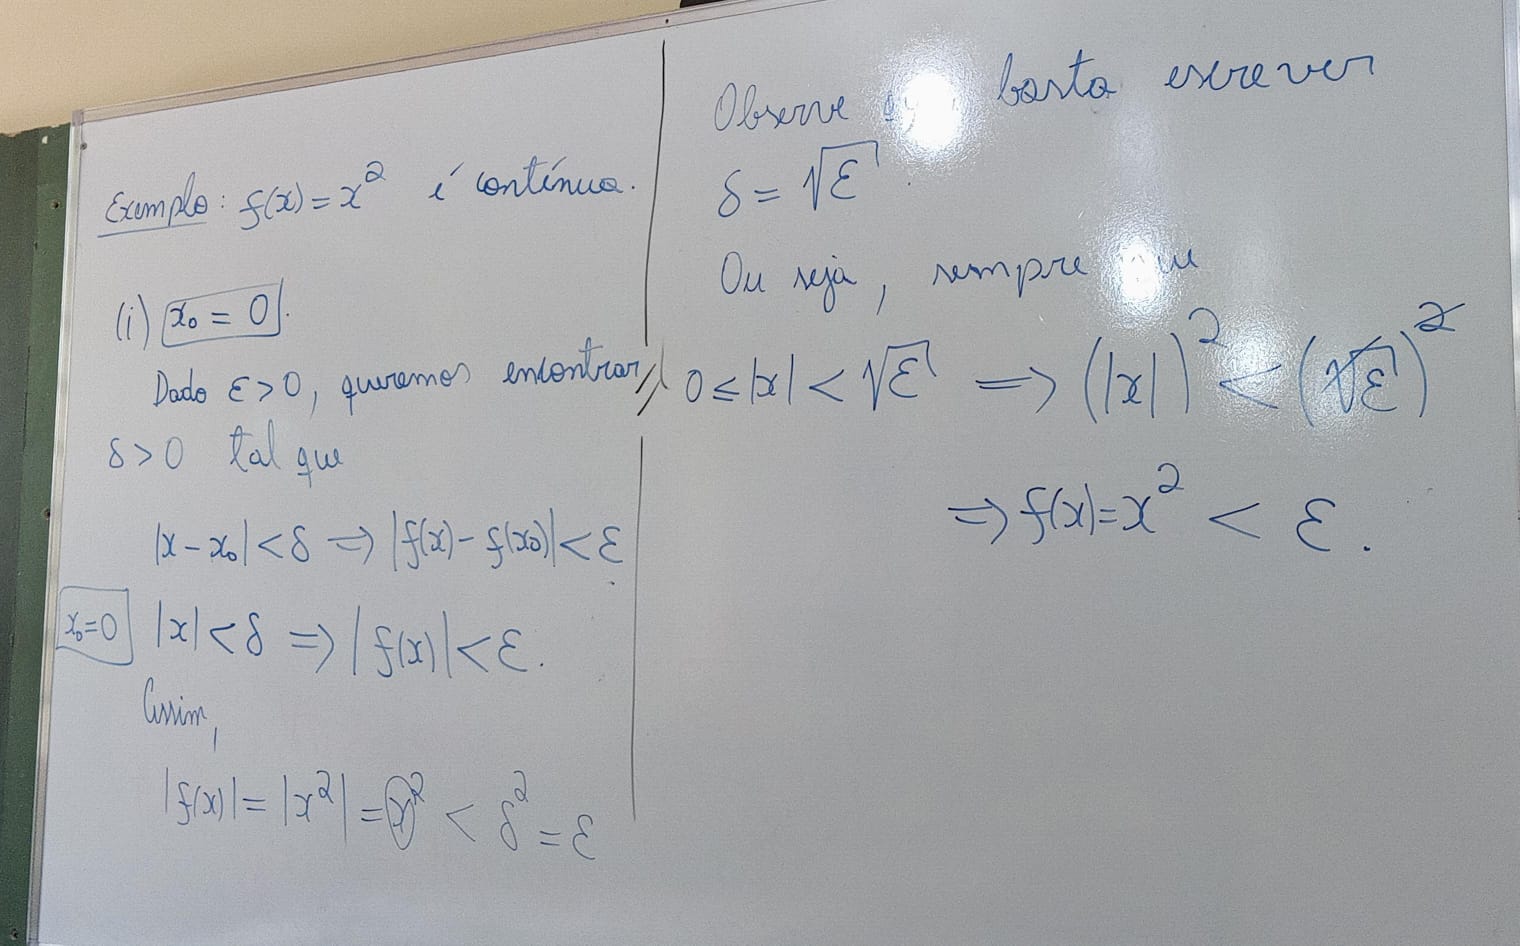 Exemplo: f(x) = x² é contínua.
(i) x₀ = 0.
Dado ε > 0, queremos encontrar
δ > 0 tal que
|x - x₀| < δ ⇒ |f(x) - f(x₀)| < ε
x₀=0 |x| < δ ⇒ |f(x)| < ε.
Assim,
|f(x)| = |x²| = x² < δ² = ε
Observe basta escrever
δ = √ε.
Ou seja, sempre que
0 ≤ |x| < √ε ⇒ (|x|)² < (√ε)²
⇒ f(x) = x² < ε.